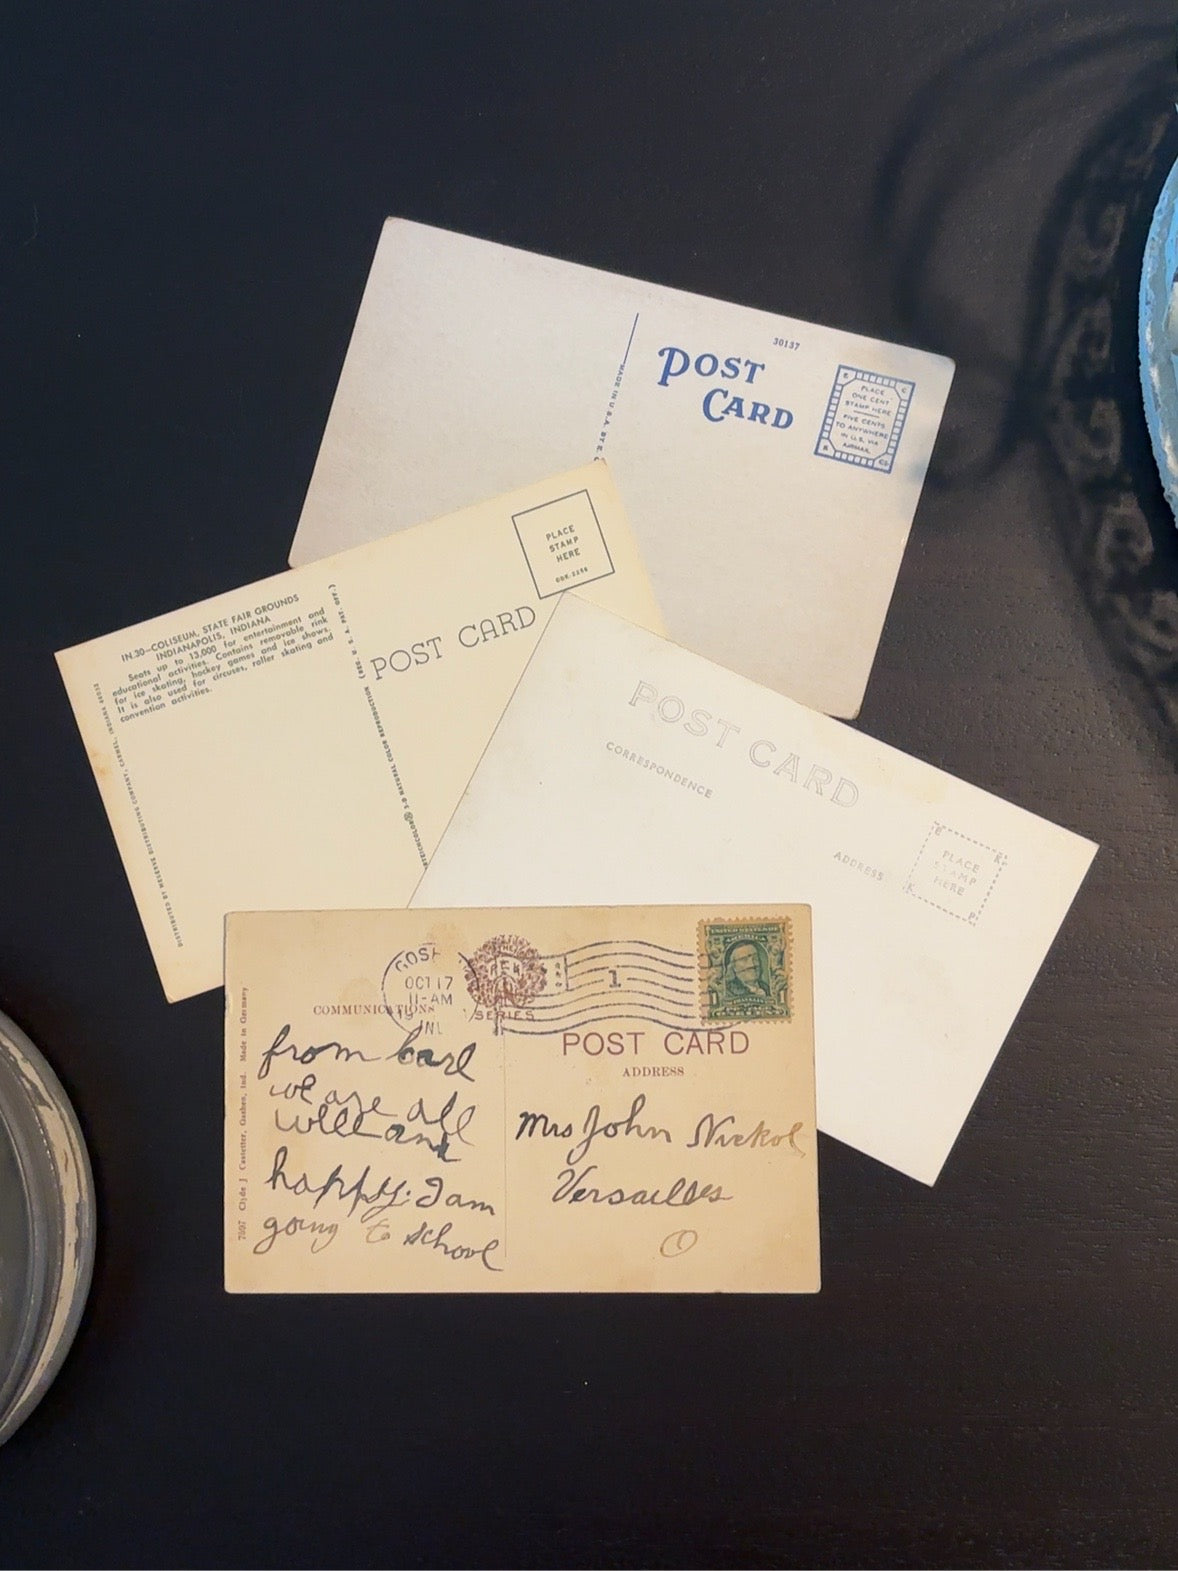 30137
POST
CARD
PLACE
ONE CENT
STAMP HERE
FIVE CENTS
TO ANYWHERE
IN U.S. VIA
AIRMAIL
MADE IN U.S.A. BY E. C.
PLACE
STAMP
HERE
POST CARD
IN.30—COLISEUM, STATE FAIR GROUNDS
INDIANAPOLIS, INDIANA
Seats up to 13,000 for entertainment and
educational activities. Contains removable rink
for ice skating, hockey games and ice shows.
It is also used for circuses, roller skating and
convention activities.
DISTRIBUTED BY RESERVE DISTRIBUTING COMPANY, CARMEL, INDIANA 46032
3-D NATURAL COLOR REPRODUCTION (REG. U. S. A. PAT. OFF.)
POST CARD
CORRESPONDENCE
ADDRESS
PLACE
STAMP
HERE
OCT 17
11-AM
IND
1
UNITED STATES OF
AMERICA
FRANKLIN
1 1
ONE CENT
SERIES
COMMUNICATIONS
POST CARD
ADDRESS
from Carl
we are all
well and
happy. I am
going to school
Mrs John Nickol
Versailles
O
7097 Clyde J Castetter, Goshen, Ind. Made in Germany